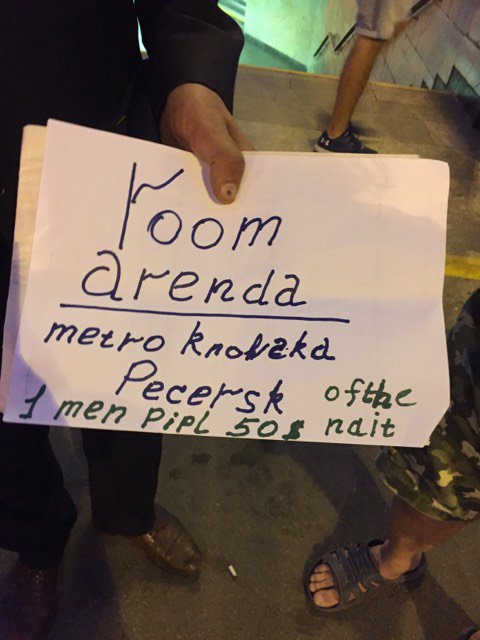 room
arenda
metro knovaka
Pecersk of the
1 men Pipl 50$ nait